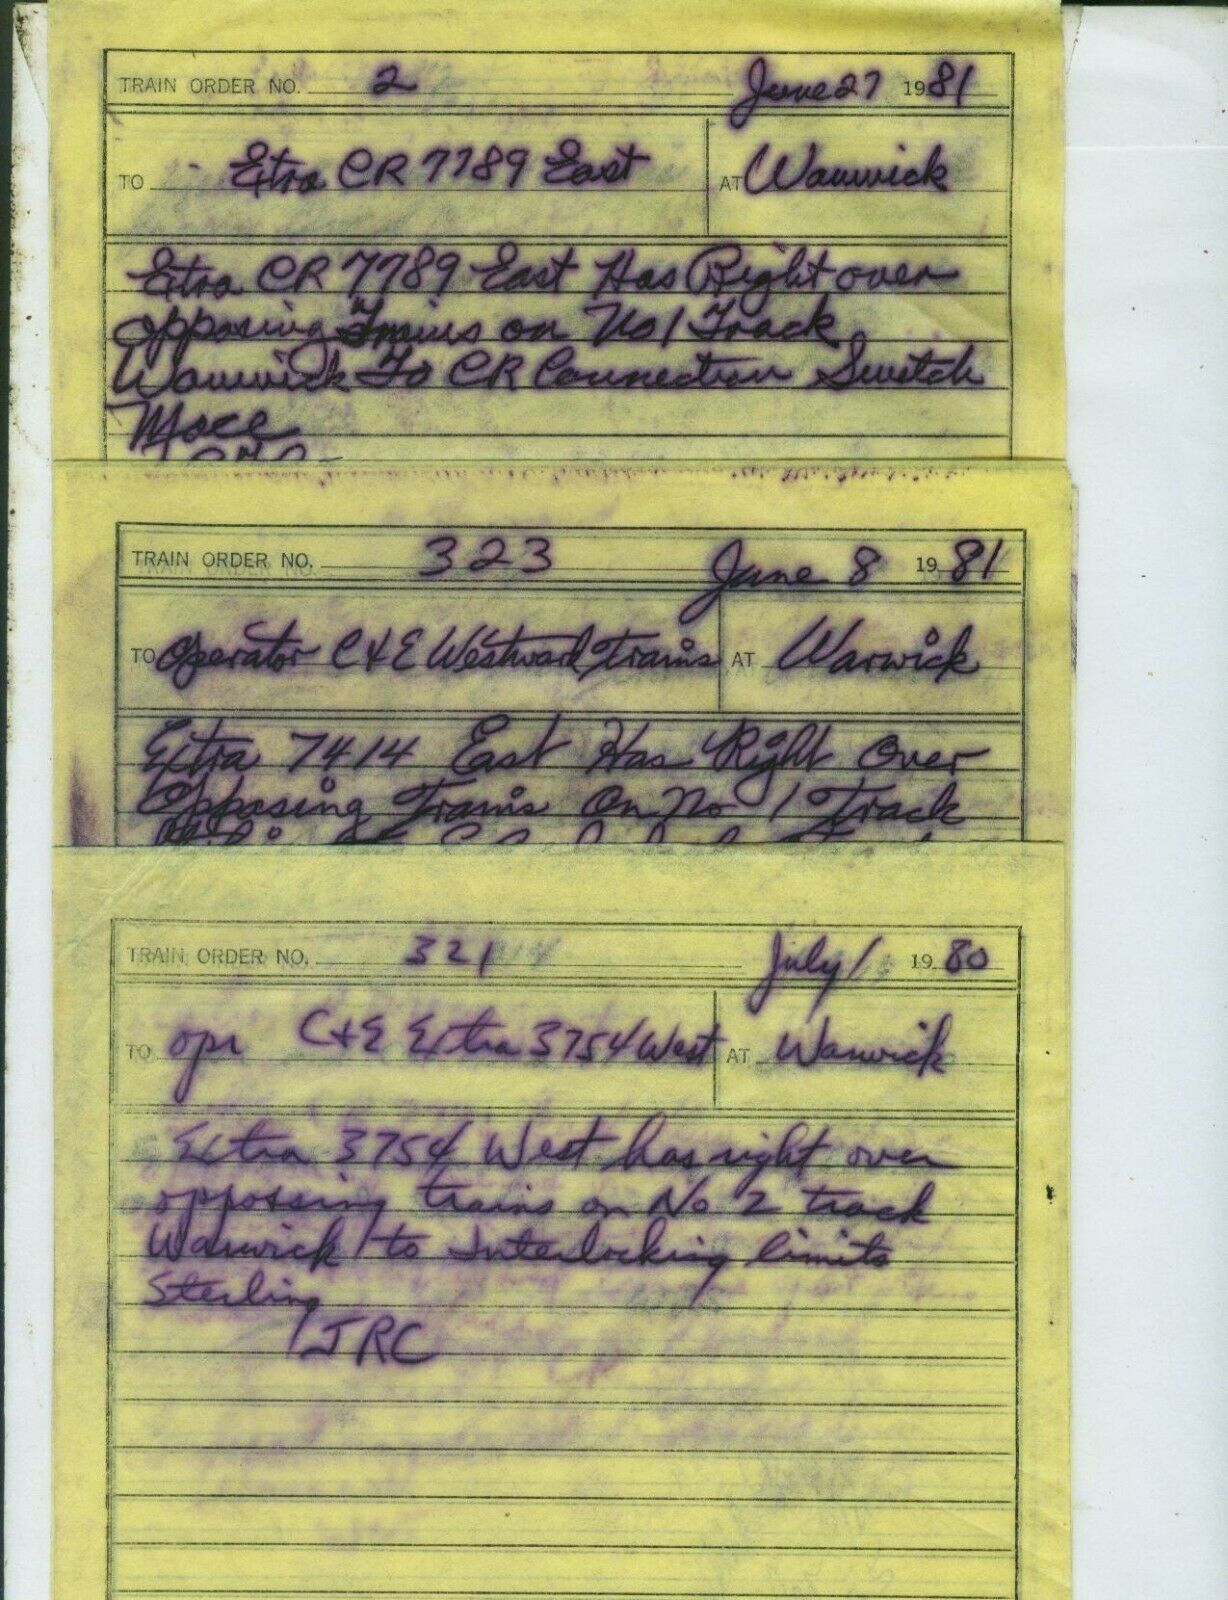 TRAIN ORDER NO. 2 June 27 1981
TO Extra CR 7789 East AT Warwick
Extra CR 7789 East Has Right over
opposing Trains on No 1 Track
Warwick To CR Connection Switch
TRAIN ORDER NO. 323 June 8 1981
TO Operator C&E Westward Trains AT Warwick
Extra 7414 East Has Right Over
Opposing Trains On No 1 Track
TRAIN ORDER NO. 321 July 1 1980
TO opr C&E Extra 3754 West AT Warwick
Extra 3754 West has right over
opposing trains on No 2 track
Warwick to Interlocking limits
Sterling
JRC